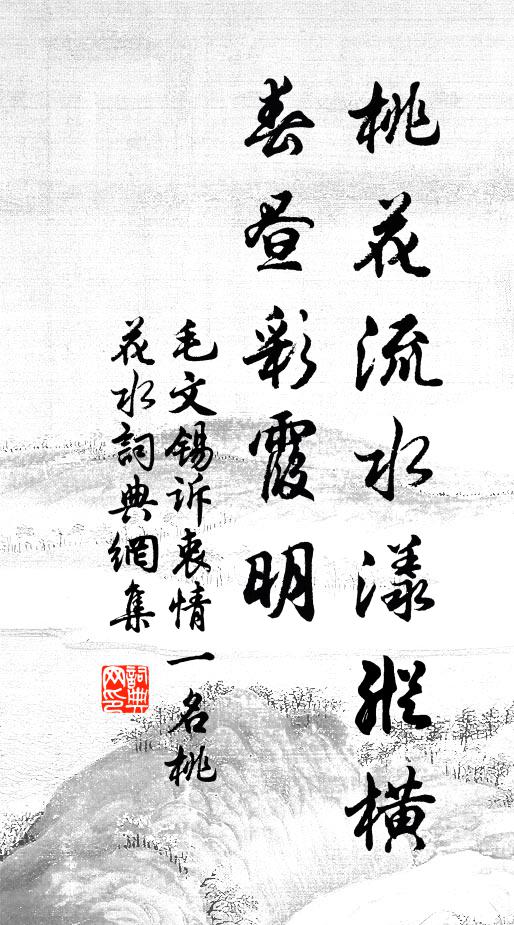 桃花流水漾縱橫
春昼彩霞明
毛文锡诉衷情一名桃
花水詞典網集
詞典网印